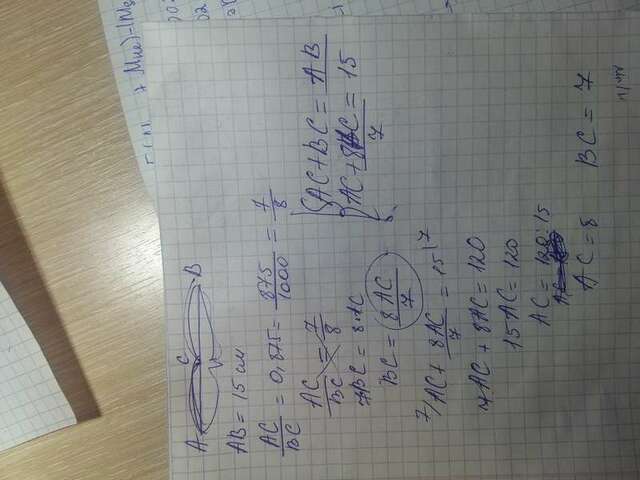 A C B
AB = 15 см
AC/BC = 0,875 = 875/1000 = 7/8
AC/BC = 7/8
7BC = 8AC
BC = 8AC/7
AC + BC = AB
AC + 8AC/7 = 15
7/ AC + 8AC/7 = 15 |7
7AC + 8AC = 120
15AC = 120
AC = 120:15
AC = 8 BC = 7